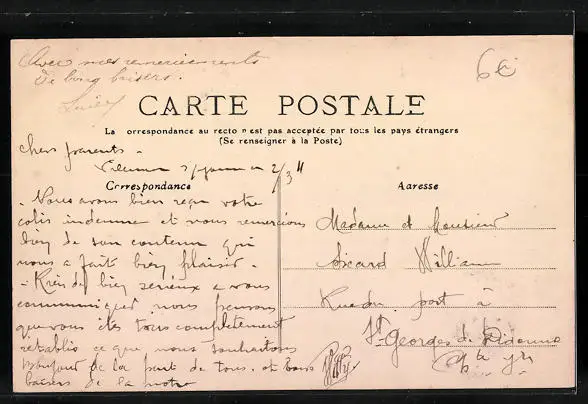 Avec mes remerciements
De long baisers.
6€
CARTE POSTALE
La orrespondance au recto n est pas acceptée par tous les pays étrangers
(Se renseigner à la Poste)
Chers parents -
2/3 11
Correspondance
Adresse
- Nous avons bien reçu votre
colis indemne et nous remercions
bien de son contenu qui
nous a fait bien plaisir -
- Rien de bien sérieux a vous
communiquer nous pensons
que vous êtes tous complètement
rétablis ce que nous souhaitons
Bonjour de la part de tous, et bons
baisers de la notre
Madame et Monsieur
Sicard William
Rue du port à
St Georges de Didonne